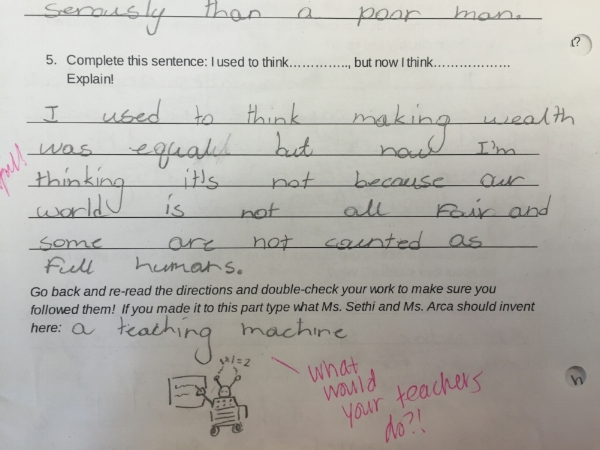 seriously than a poor man.
5. Complete this sentence: I used to think…………., but now I think………………
Explain!
I used to think making wealth
was equal but now I'm
thinking it's not because our
world is not all fair and
some are not counted as
full humans.
Go back and re-read the directions and double-check your work to make sure you
followed them! If you made it to this part type what Ms. Sethi and Ms. Arca should invent
here: a teaching machine
1+1=2
what
would
your teachers
do?!